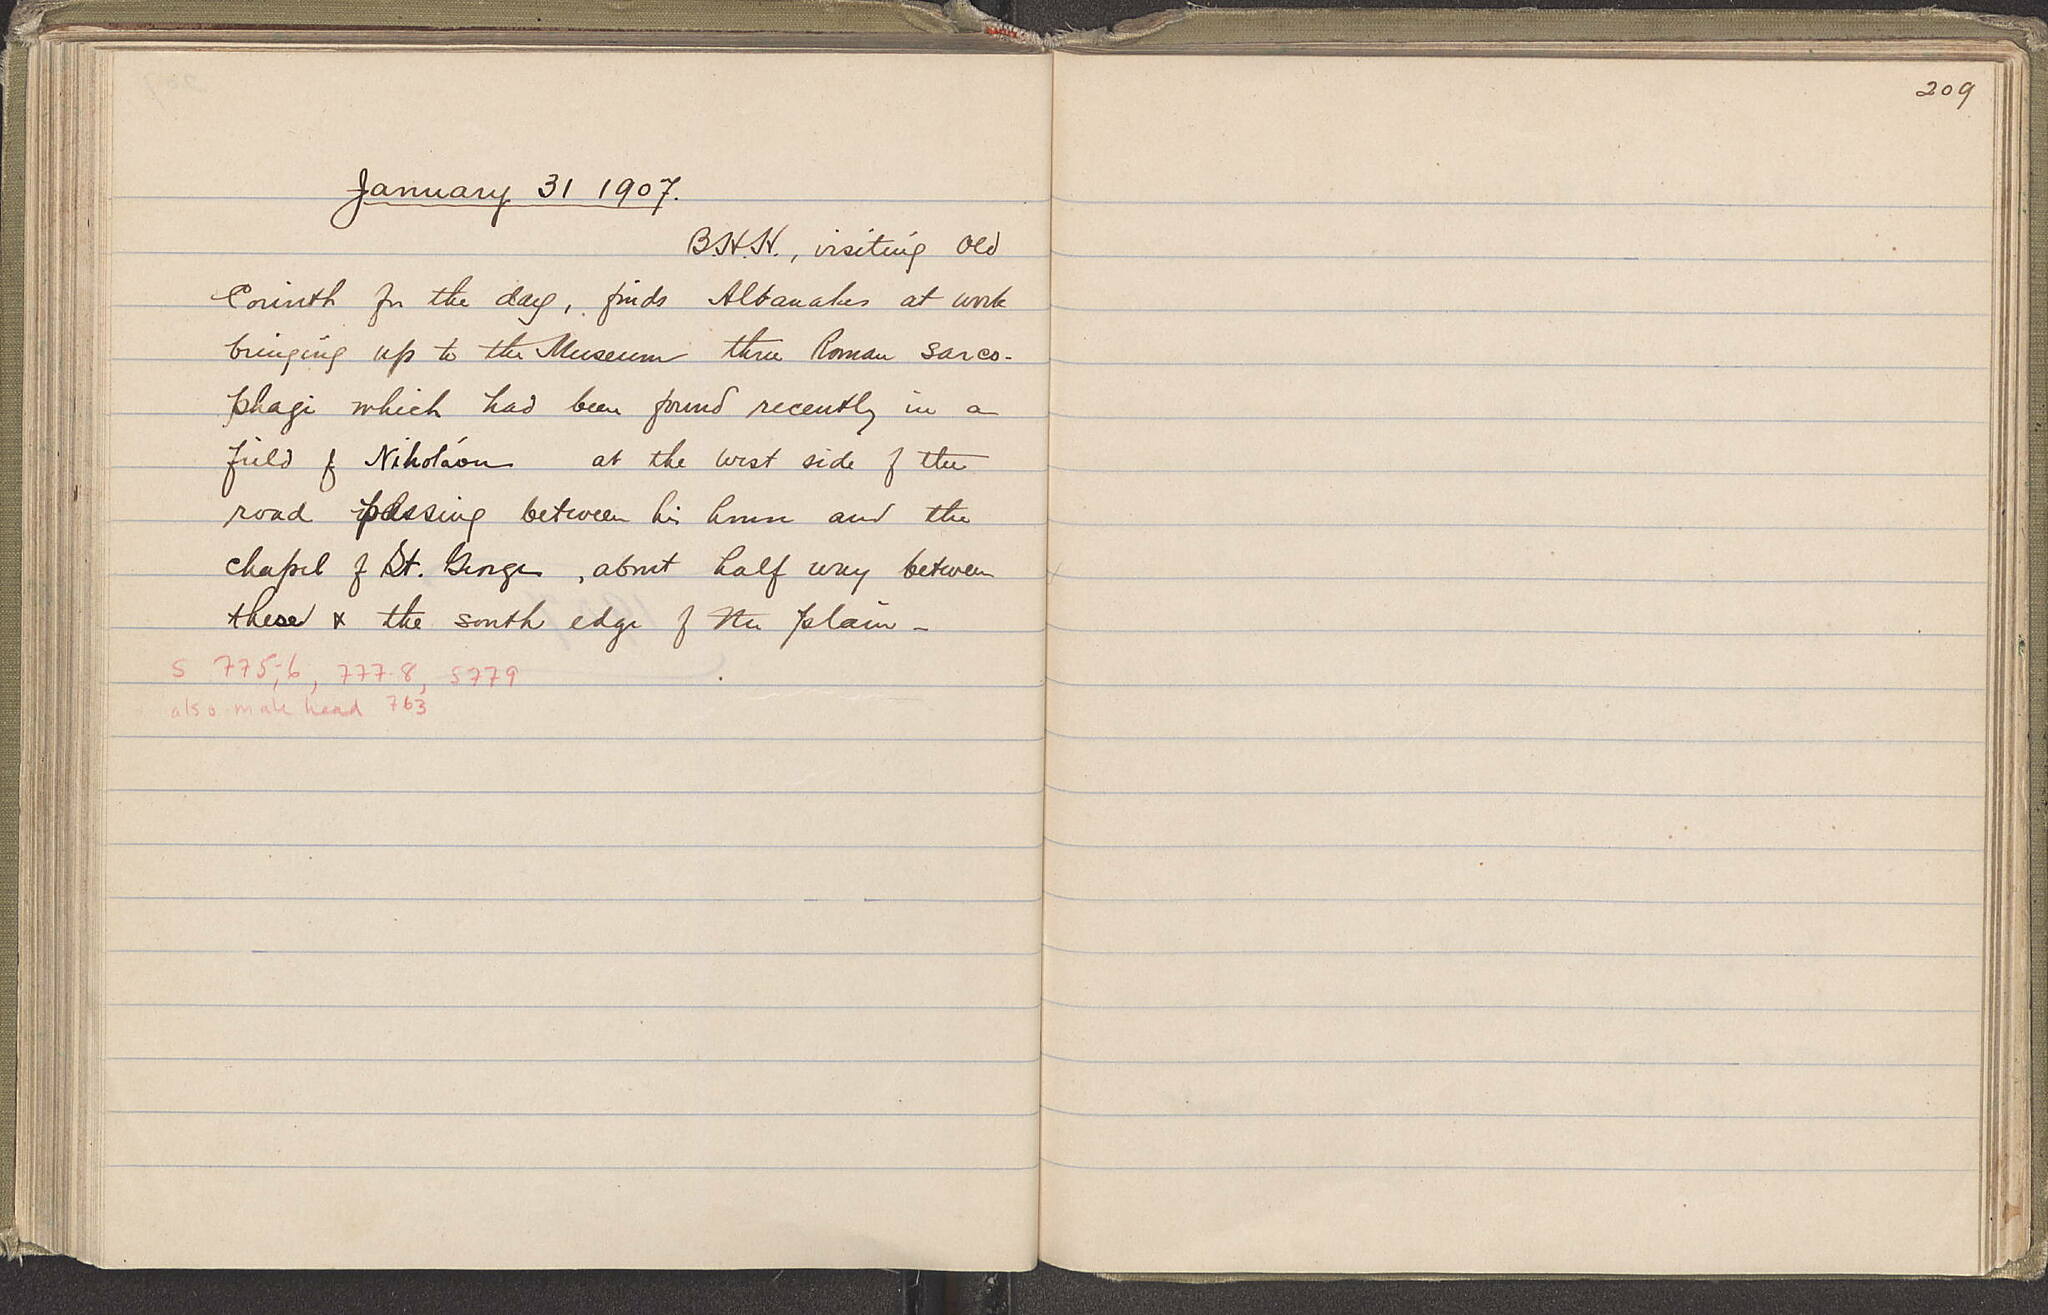 January 31 1907.
B.H.H., visiting Old
Corinth for the day, finds Albanakes at work
bringing up to the Museum three Roman sarco-
phagi which had been found recently in a
field of Nikoláou at the west side of the
road passing between his house and the
chapel of St. George, about half way between
these & the south edge of the plain -
S 775-6, 777-8, S779
also male head 763
209